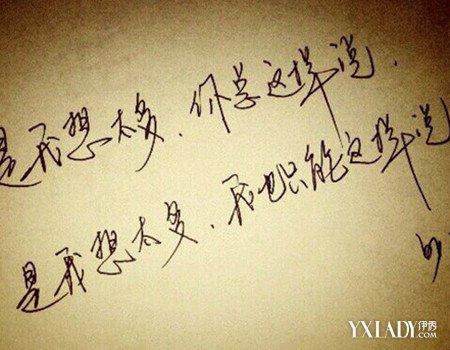 是我想太多、你总这样说.
是我想太多、我也只能这样说
YXLADY.COM 伊秀